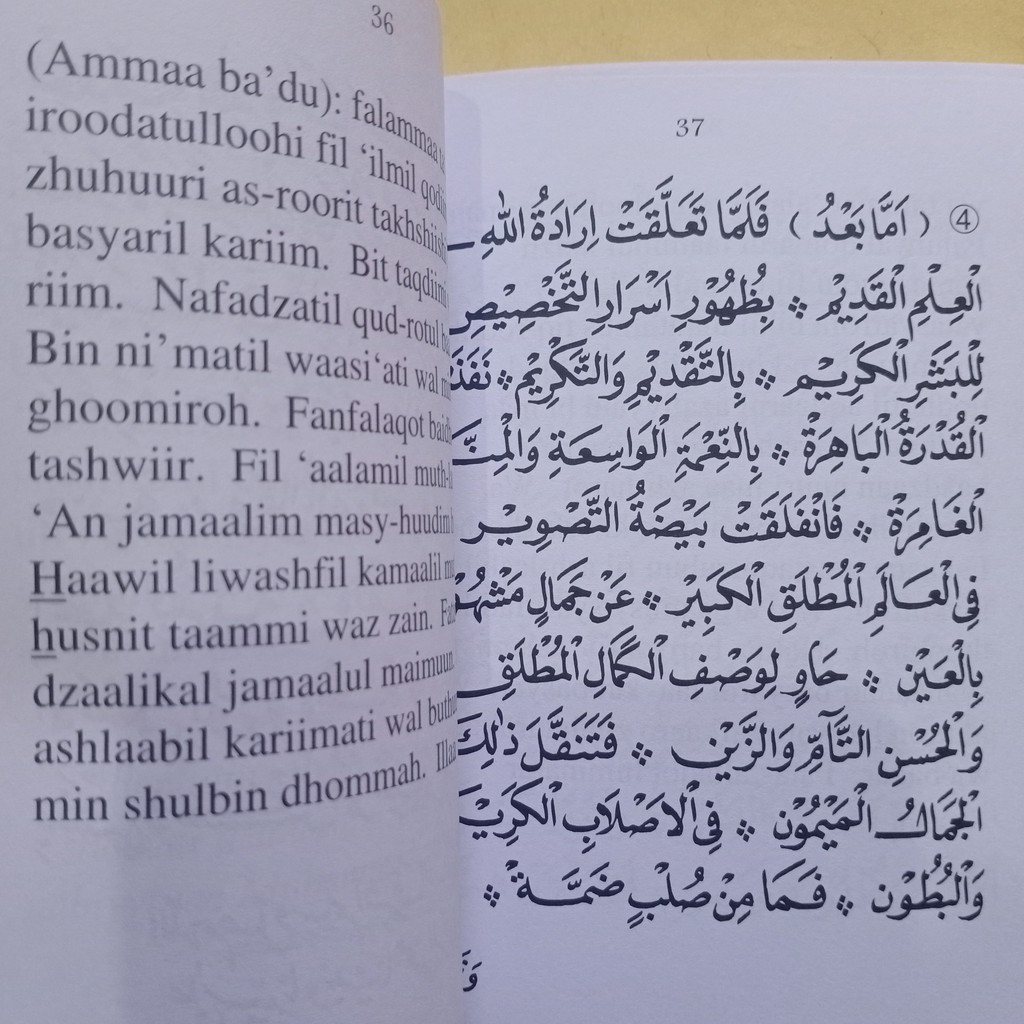 36
(Ammaa ba’du): falammaa
iroodatulloohi fil ‘ilmil
zhuhuuri as-roorit
basyaril kariim. Bit
riim. Nafadzatil qud-rotul
Bin ni’matil waasi‘ati wal
ghoomiroh. Fanfalaqot
tashwiir. Fil ‘aalamil
‘An jamaalim masy-huudim
Haawil liwashfil kamaalil
husnit taammi waz zain.
dzaalikal jamaalul maimuun.
ashlaabil kariimati wal
min shulbin dhommah.
37
④ ( اَمَّا بَعْدُ ) فَلَمَّا تَعَلَّقَتْ اِرَادَةُ اللّٰهِ
الْعِلْمِ الْقَدِيْمِ ۞ بِظُهُوْرِ اَسْرَارِ التَّخْصِيْصِ
لِلْبَشَرِ الْكَرِيْمِ ۞ بِالتَّقْدِيْمِ وَالتَّكْرِيْمِ ۞
الْقُدْرَةُ الْبَاهِرَةْ ۞ بِالنِّعْمَةِ الْوَاسِعَةِ
الْغَامِرَةْ ۞ فَانْفَلَقَتْ بَيْضَةُ التَّصْوِيْرِ
فِى الْعَالَمِ الْمُطْلَقِ الْكَبِيْرِ ۞ عَنْ جَمَالٍ
بِالْعَيْنِ ۞ حَاوٍ لِوَصْفِ الْكَمَالِ الْمُطْلَقِ
وَالْحُسْنِ التَّآمِّ وَالزَّيْنِ ۞ فَتَنَقَّلَ ذٰلِكَ
الْجَمَالُ الْمَيْمُوْنِ ۞ فِى الْاَصْلَابِ
وَالْبُطُوْنِ ۞ فَمَا مِنْ صُلْبٍ ضَمَّةْ ۞